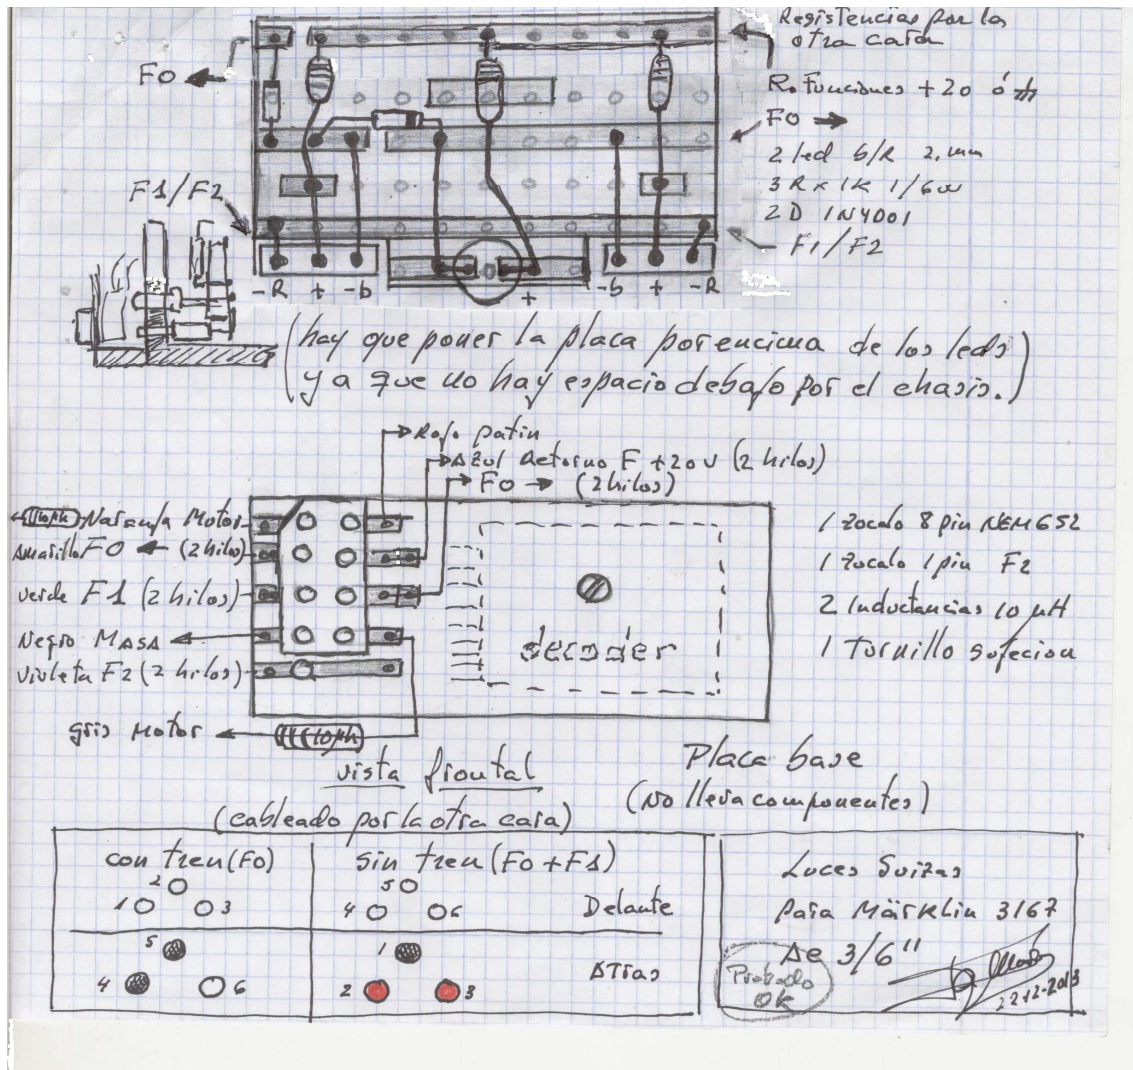 Resistencias por la
otra cara
F0 ←
R. Funciones + 20 ó
F0 →
2 led b/R 2. mm
3 R x 1K 1/6w
2 D 1N4001
F1/F2
F1/F2
-R + -b + -b + -R
(hay que poner la placa por encima de los leds)
ya que no hay espacio debajo por el chasis.)
Rojo patin
Azul Retorno F +20v (2 hilos)
F0 → (2 hilos)
10µh Naranja Motor
Amarillo F0 ← (2 hilos)
verde F1 (2 hilos)
Negro MASA
Violeta F2 (2 hilos)
gris Motor
10µh
decoder
1 zocalo 8 pin NEM652
1 zocalo 1 pin F2
2 Inductancias 10 µH
1 Tornillo sujecion
vista frontal
(cableado por la otra cara)
Placa base
(No lleva componentes)
con tren (F0)
2
1 3
sin tren (F0 + F1)
5
4 6
Delante
5
4 6
1
2 3
Atras
Luces Suizas
para Märklin 3167
Ae 3/6"
Probado
OK
22-12-2013